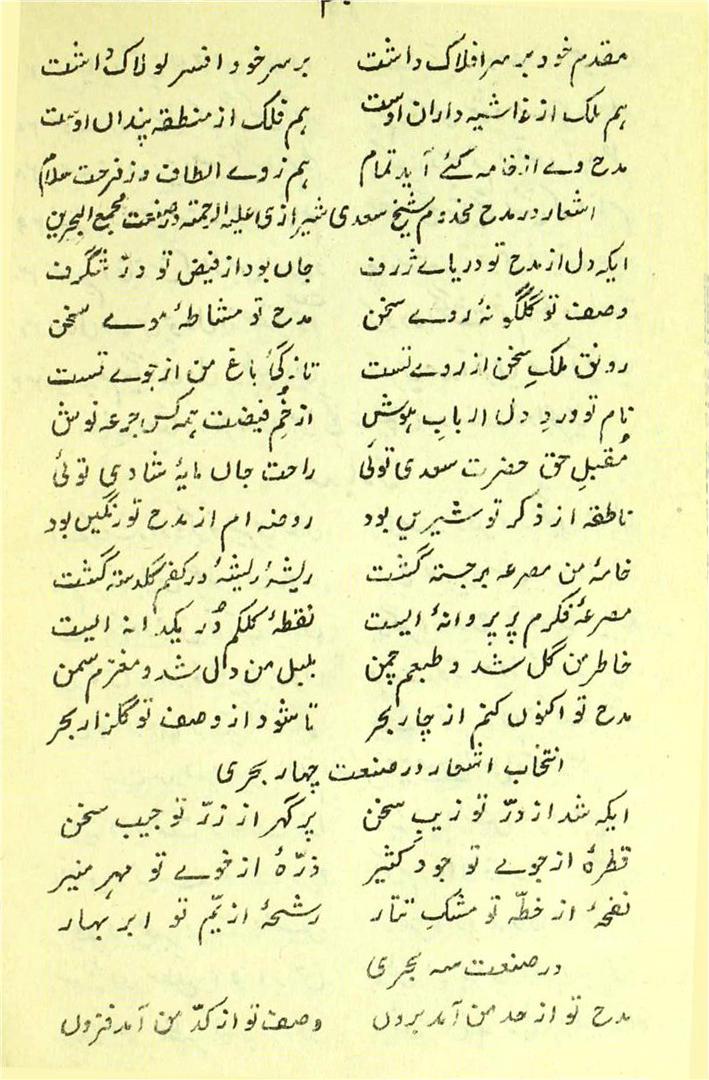 ۳۰
مقدم خود بر سر افلاک داشت بر سر خود افسر لولاک داشت
ہم ملک از غاشیہ داران اوست ہم فلک از منطقہ بنداں اوست
مدح وے از خامہ کئے آید تمام ہم زوے الطاف و ز فرحت سلام
اشعار در مدح مخدوم شیخ سعدی شیرازی علیہ الرحمتہ در صنعت مجمع البحرین
ایکہ دل از مدح تو دریاے ژرف جاں بود از فیض تو درّ شگرف
وصف تو گلگونۂ روے سخن مدح تو مشاطۂ موے سخن
رونق ملکِ سخن از روے تست تازگئ باغ من از جوے تست
نام تو وردِ دل اربابِ ہوش از خُمِ فیضت ہمہ کس جرعہ نوش
مُقبلِ حق حضرت سعدی توئی راحت جاں مایۂ شادی توئی
ناطقہ از ذکر تو شیریں بود روضہ ام از مدح تو رنگیں بود
خامۂ من مصرعہ برجستہ گشت ریشۂ ریشۂ در کفم گلدستہ گشت
مصرعۂ فکرم پرِ پروانۂ ایست نقطۂ کلکم دُر یکدانہ ایست
خاطر من گل شد و طبعم چمن بلبل من دال شد و مغزم سمن
مدح تو اکنوں کنم از چار بحر تا شود از وصف تو گلزار بحر
انتخاب اشعار در صنعت چہار بحری
ایکہ شد از درّ تو زیبِ سخن پر گہر از زرّ تو جیب سخن
قطرۂ از جوے تو جود کثیر ذرّۂ از خوے تو مہرِ منیر
نفحۂ از خطّہ تو مشکِ تتار رشحۂ از یمّ تو ابر بہار
در صنعت سہ بحری
مدح تو از حد من آمد بروں وصف تو از کدّ من آمد فزوں